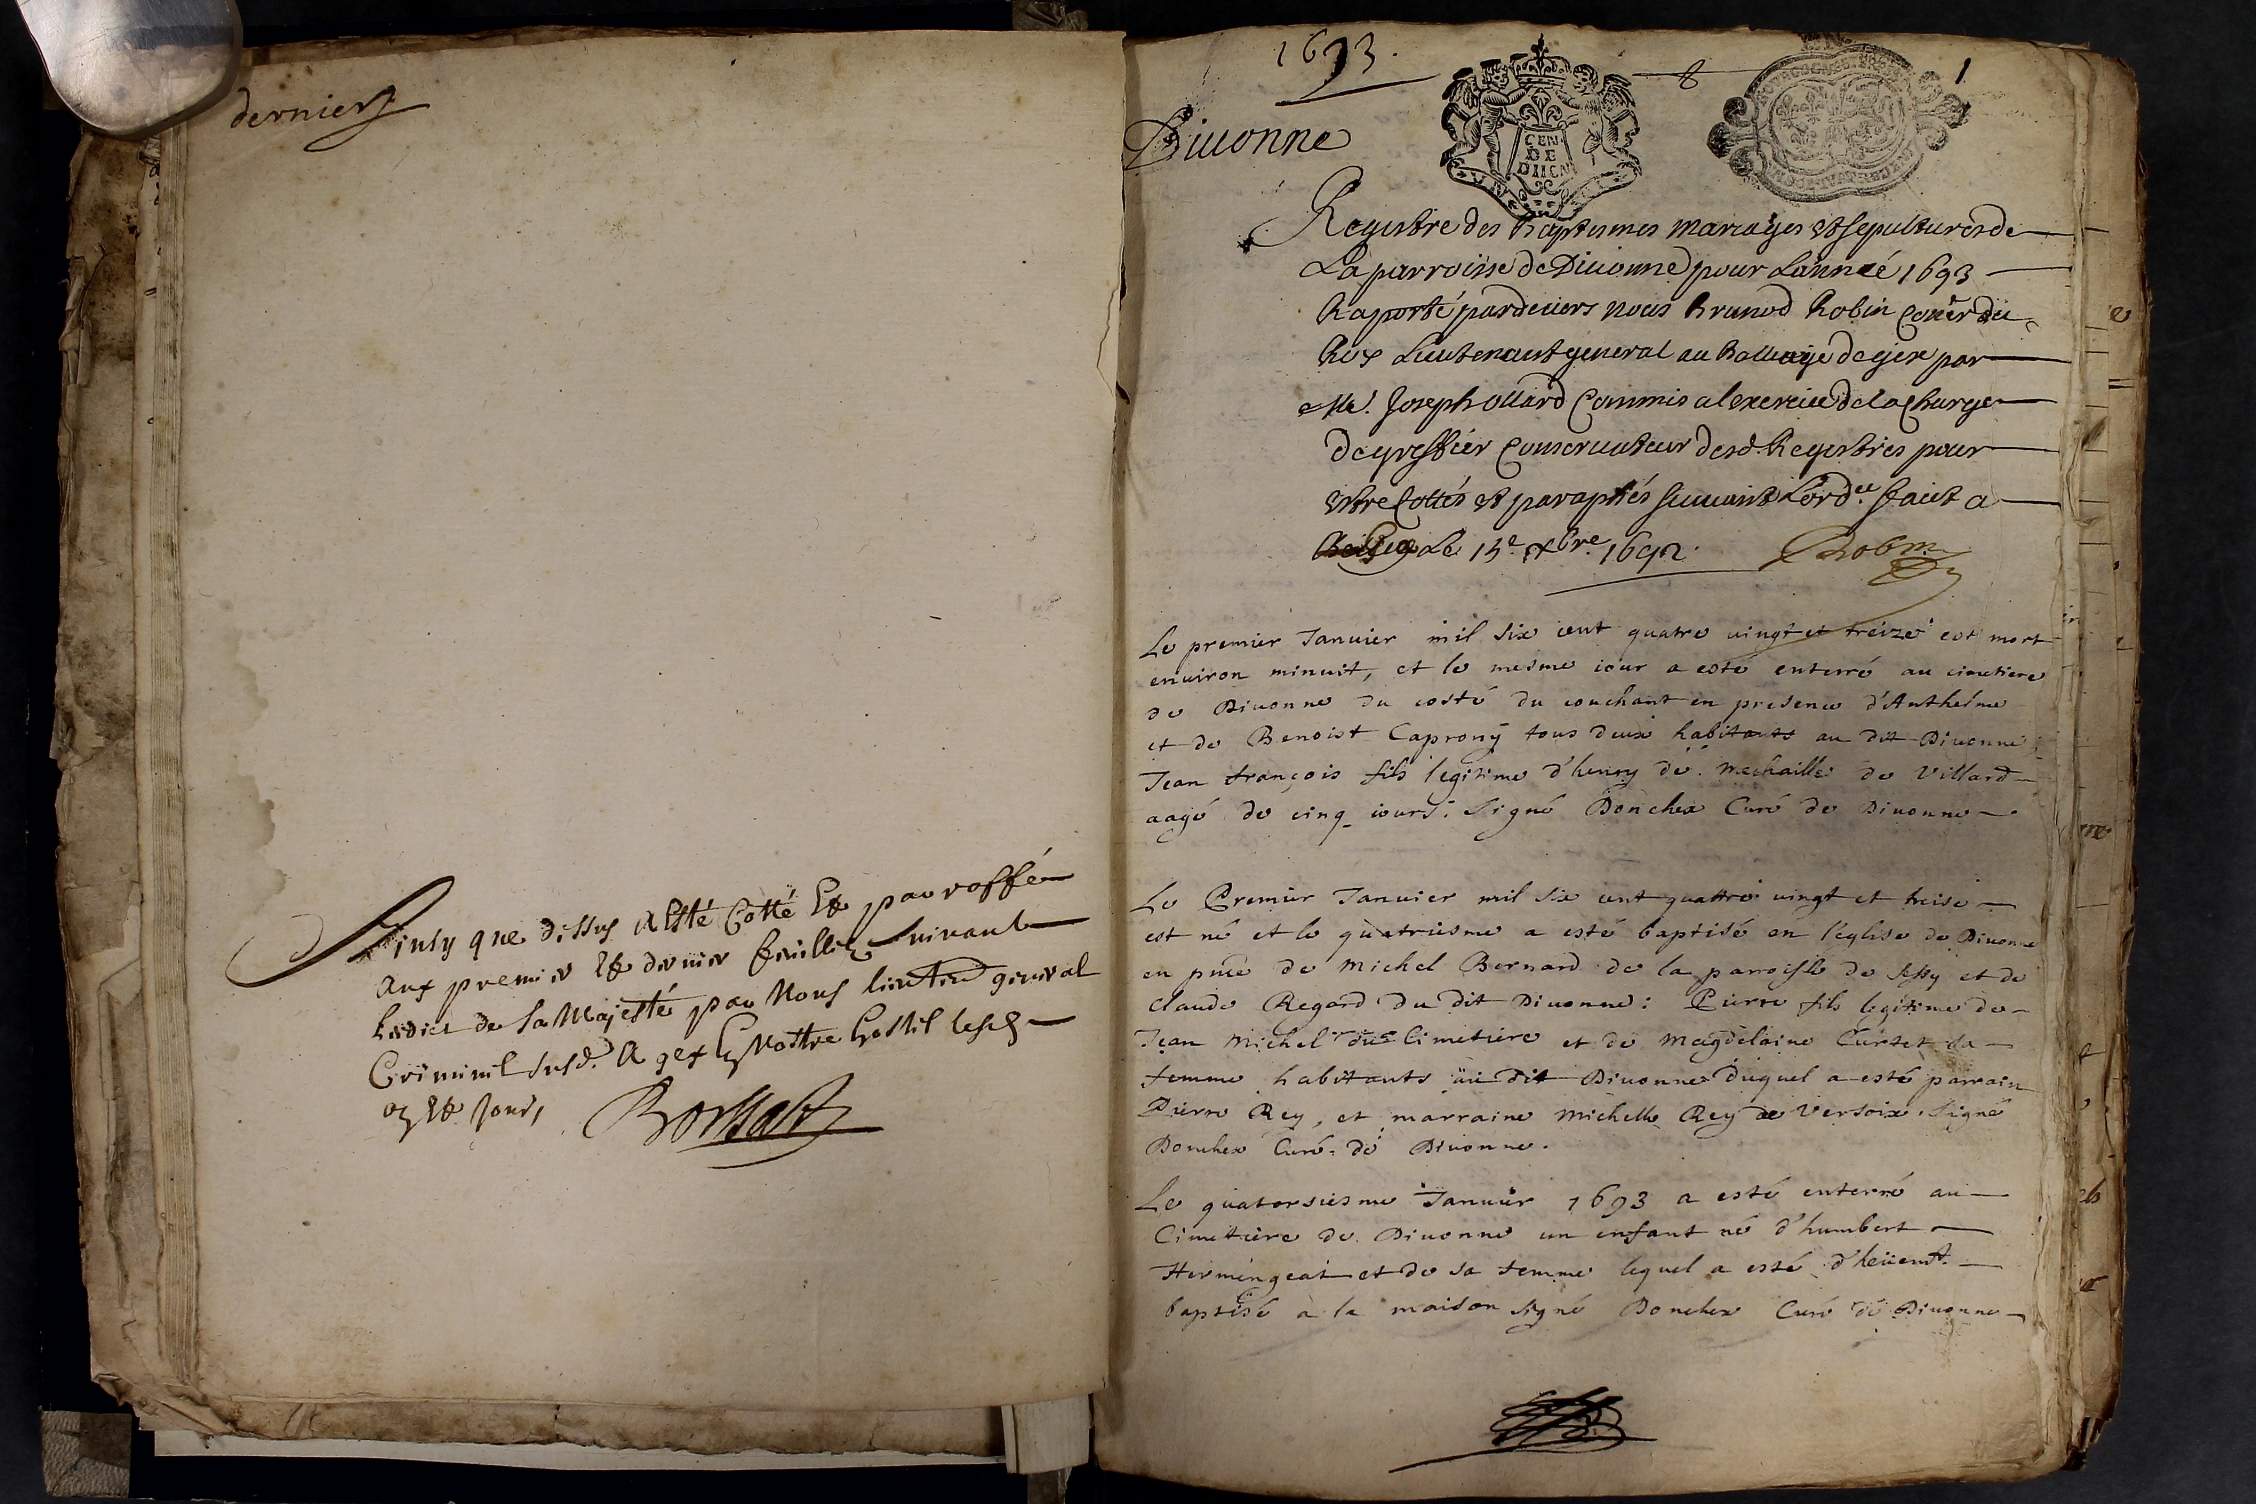 dernier
Ainsy que dessus a Esté Cotté Et parraffé
aux premier Et dernier feuillets suivant
Ledict de Sa Majesté par Nous lieuten general
Criminel susd. A gex En Nostre hostel lesd
an Et Jour,
Borssat
1693.
1
Diuonne
GEN.
DE
DIION
Registre des Baptesmes mariages et sepultures de
La parroisse de Diuonne pour Lannée 1693
Raporté pardeuers nous Brunod Robin Coner du
Roy Lieutenant general au Balliage de gex par
Me. Joseph ollard Commis a lexercice de la Charge
de greffier Conseruateur desd. Registres pour
estre Cottés et paraphés suiuant Lord.ce faict a
Gex Le 15e xbre 1692.
Robin
Le premier Januier mil six cent quatre uingt et treize est mort
enuiron minuit, et le mesme iour a esté enterré au cimetiere
de Diuonne du costé du couchant en presence d'Anthelme
et de Benoist Caprony tous deux habitants au dit Diuonne
Jean françois fils legitime d'henry de Mechaille de Villard
aagé de cinq iours. Signé Bonchex Curé de Diuonne
Le Premier Januier mil six cent quattre uingt et treise
est né et le quatriesme a esté baptisé en l'église de Diuonne
en pnce de Michel Bernard de la paroisse de Sessy et de
Claude Regard du dit Diuonne: Pierre fils legitime de
Jean Michel du Cimetiere et de Magdelaine Curtet sa
femme habitants au dit Diuonne duquel a esté parrain
Pierre Rey, et marraine Michelle Rey de Versoix. Signé
Bonchex Curé de Diuonne.
Le quatorsiesme Januier 1693 a esté enterré au
Cimetiere de Diuonne un enfant né d'humbert
Hermingeat et de sa femme lequel a esté
baptisé à la maison signé Bonchex Curé de Diuonne